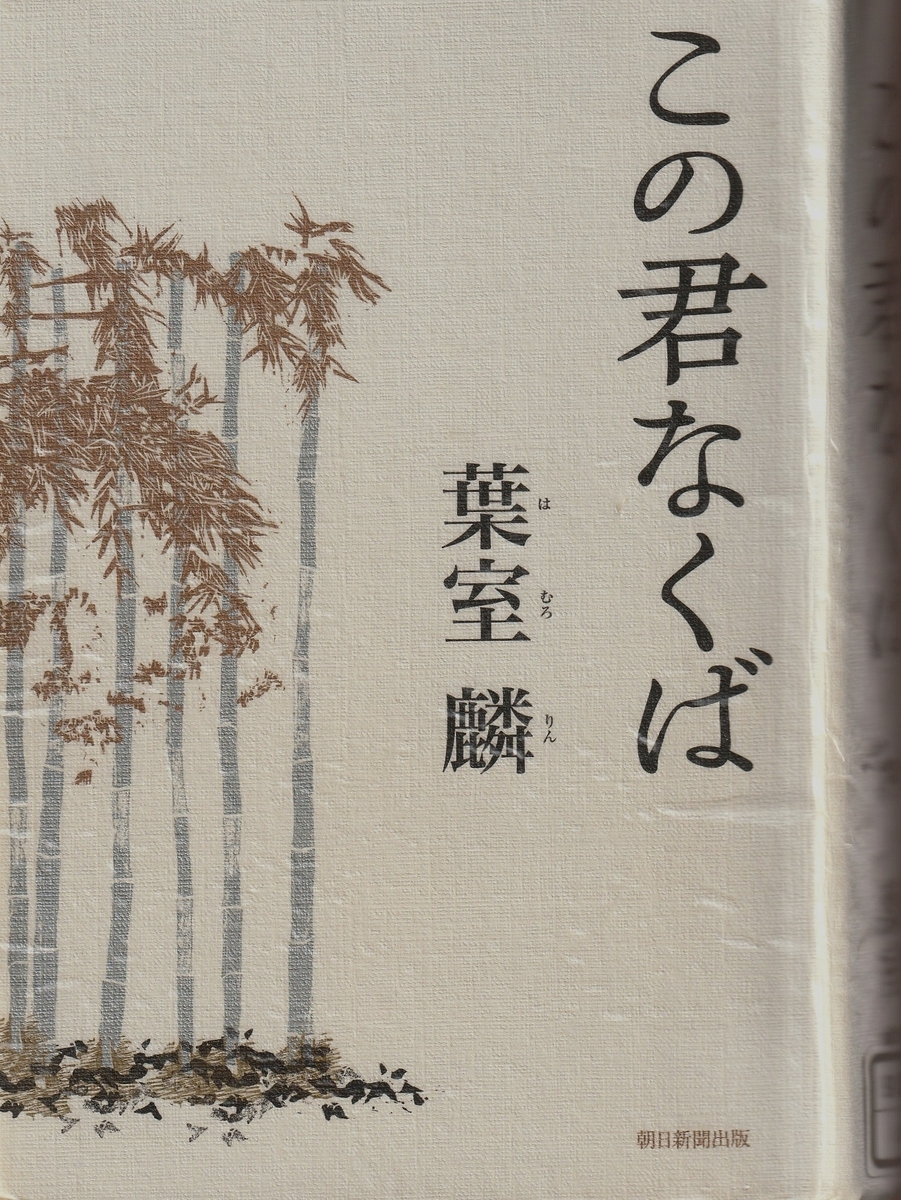 この君なくば
葉室 麟
はむろ りん
朝日新聞出版